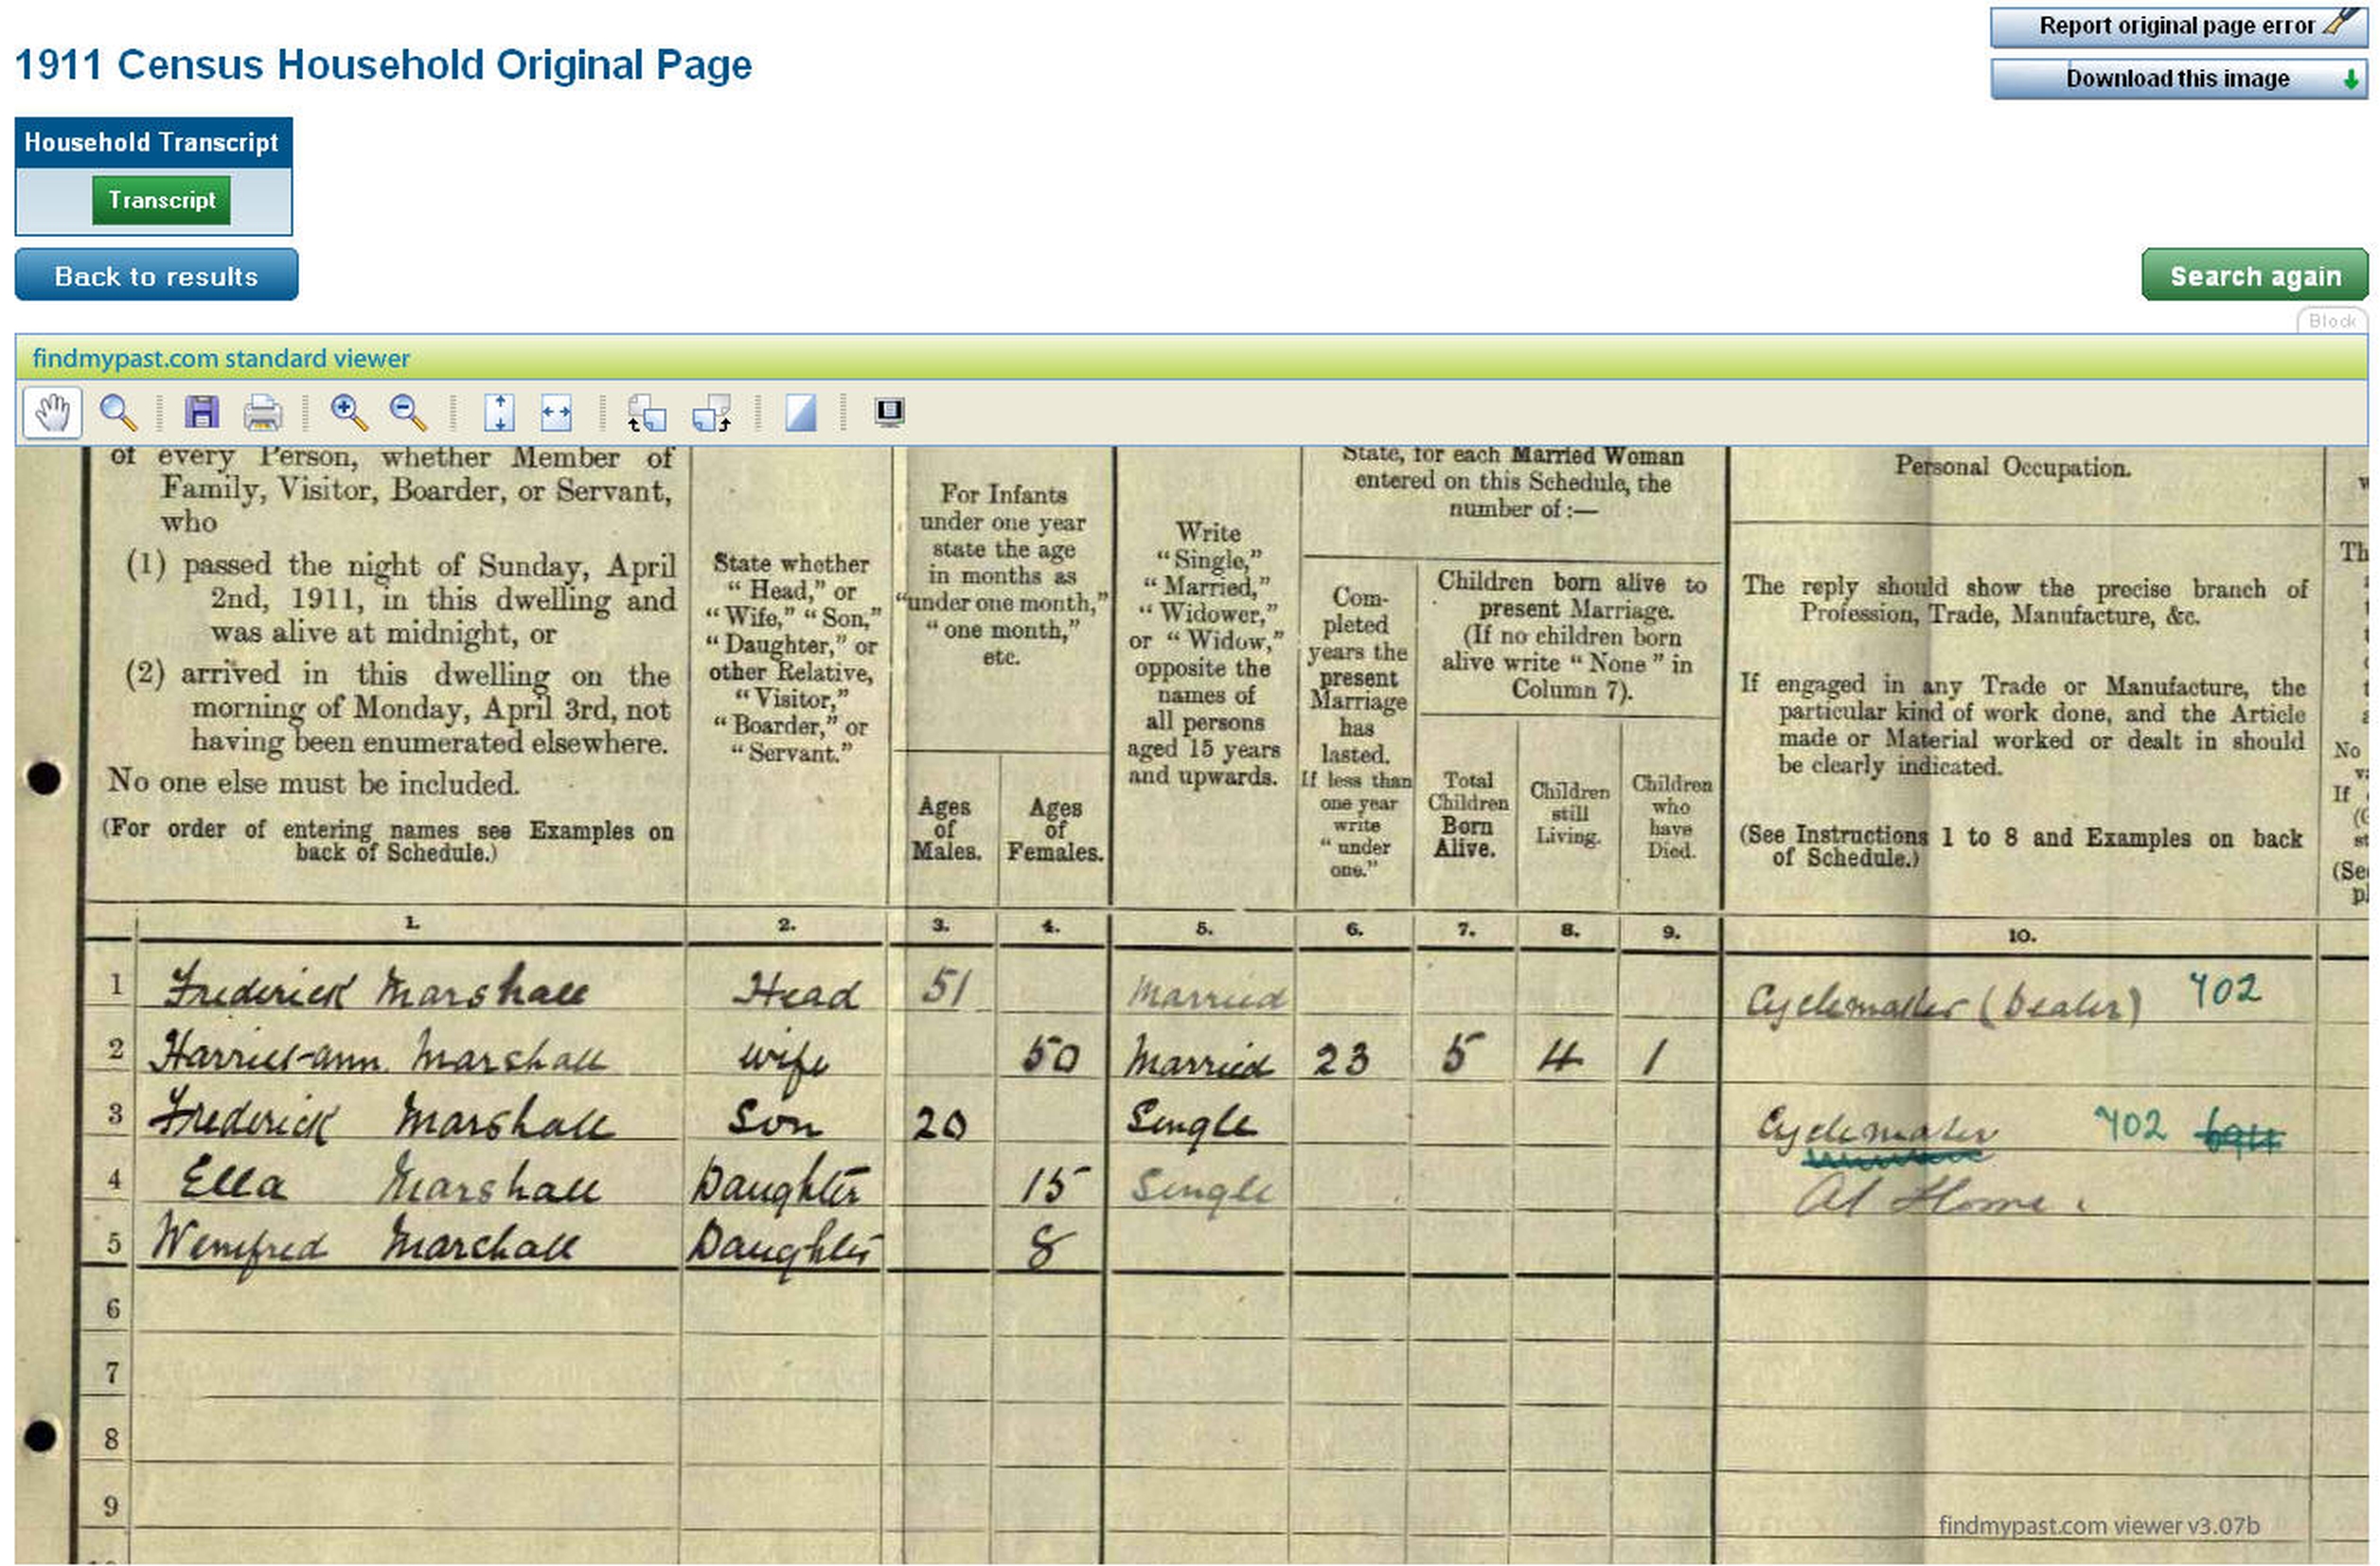 Report original page error
1911 Census Household Original Page
Download this image
Household Transcript
Transcript
Back to results
Search again
Block
findmypast.com standard viewer
of every Person, whether Member of
Family, Visitor, Boarder, or Servant,
who
(1) passed the night of Sunday, April
2nd, 1911, in this dwelling and
was alive at midnight, or
(2) arrived in this dwelling on the
morning of Monday, April 3rd, not
having been enumerated elsewhere.
No one else must be included.
(For order of entering names see Examples on
back of Schedule.)
State whether
"Head," or
"Wife," "Son,"
"Daughter," or
other Relative,
"Visitor,"
"Boarder," or
"Servant."
For Infants
under one year
state the age
in months as
"under one month,"
"one month,"
etc.
Ages
of
Males.
Ages
of
Females.
Write
"Single,"
"Married,"
"Widower,"
or "Widow,"
opposite the
names of
all persons
aged 15 years
and upwards.
State, for each Married Woman
entered on this Schedule, the
number of :—
Com-
pleted
years the
present
Marriage
has
lasted.
If less than
one year
write
"under
one."
Children born alive to
present Marriage.
(If no children born
alive write "None" in
Column 7).
Total
Children
Born
Alive.
Children
still
Living.
Children
who
have
Died.
Personal Occupation.
The reply should show the precise branch of
Profession, Trade, Manufacture, &c.
If engaged in any Trade or Manufacture, the
particular kind of work done, and the Article
made or Material worked or dealt in should
be clearly indicated.
(See Instructions 1 to 8 and Examples on back
of Schedule.)
Th
No
If
(Se
1. 2. 3. 4. 5. 6. 7. 8. 9. 10.
1 Frederick Marshall Head 51 Married Cyclemaker (Dealer) 702
2 Harriet-ann Marshall wife 50 Married 23 5 4 1
3 Frederick Marshall Son 20 Single Cyclemaker 702
4 Ella Marshall Daughter 15 Single At Home.
5 Wenifred Marshall Daughter 8
6
7
8
9
findmypast.com viewer v3.07b